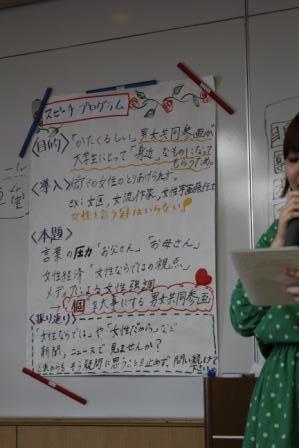 スピーチプログラム
〈目的〉「かたくるしい」男女共同参画が
大学生にとって「身近」なものになって
もらうため。
〈導入〉街での女性のとりあげられ方。
ex: 女医、女流作家、女性学長
女性と言う
〈本題〉
言葉の圧力「お父さん」「お母さん」
女性経済「女性ならではの視点」
メディアによる女性強調
→「個」を大事にする男女共同参画
〈振り返り〉
女性ならでは」や「女性だから」など
新聞、ニュースで見ませんか?
これからも そう疑問に思うことを止めず、問い続けて
下さい